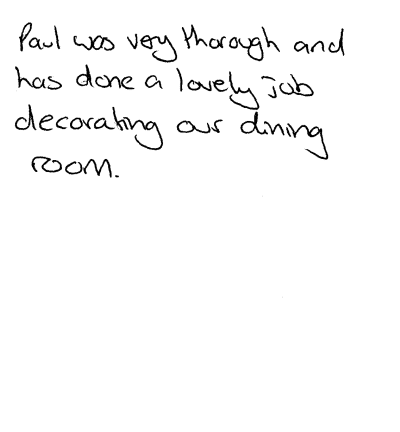 Paul was very thorough and
has done a lovely job
decorating our dining
room.